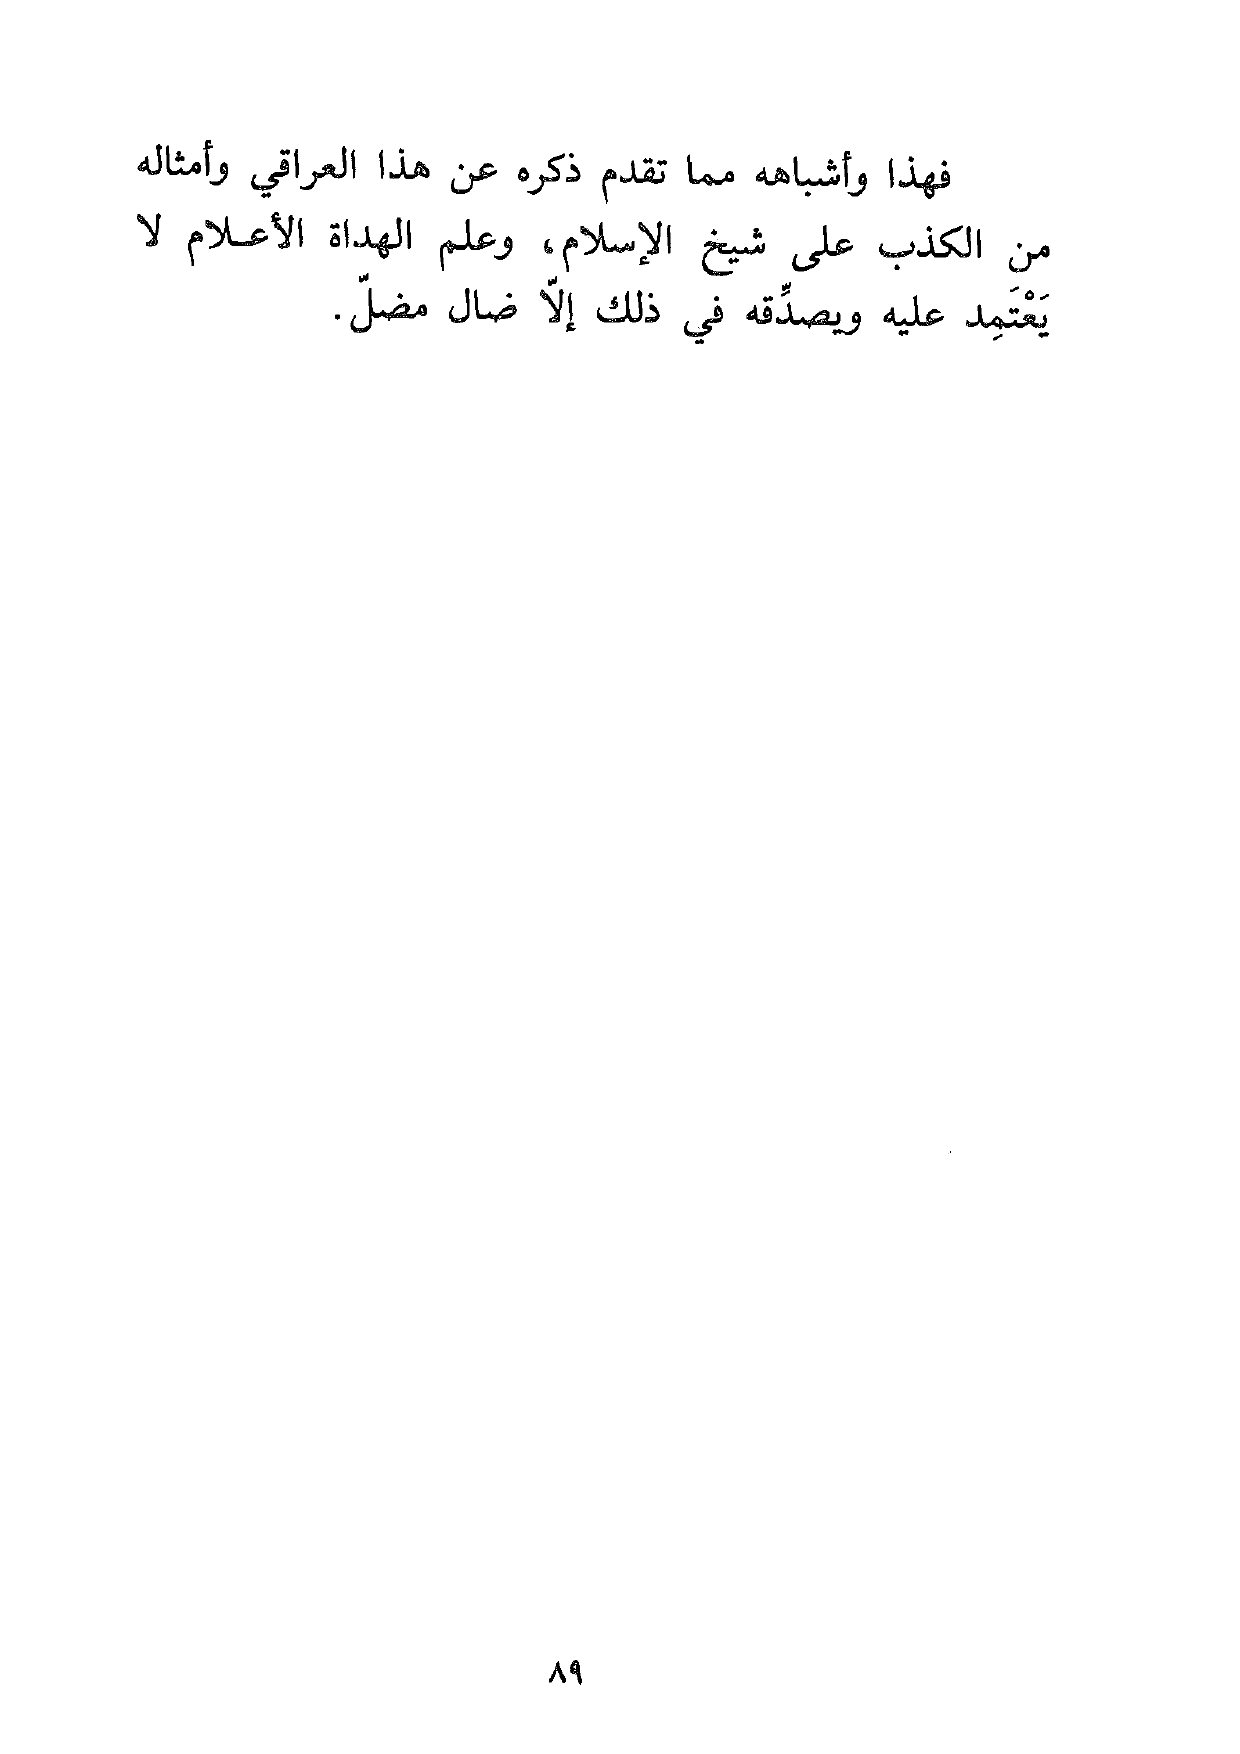 فهذا وأشباهه مما تقدم ذكره عن هذا العراقي وأمثاله
من الكذب على شيخ الإسلام، وعلم الهداة الأعلام لا
يَعْتَمِد عليه ويصدِّقه في ذلك إلاّ ضال مضلّ.
٨٩